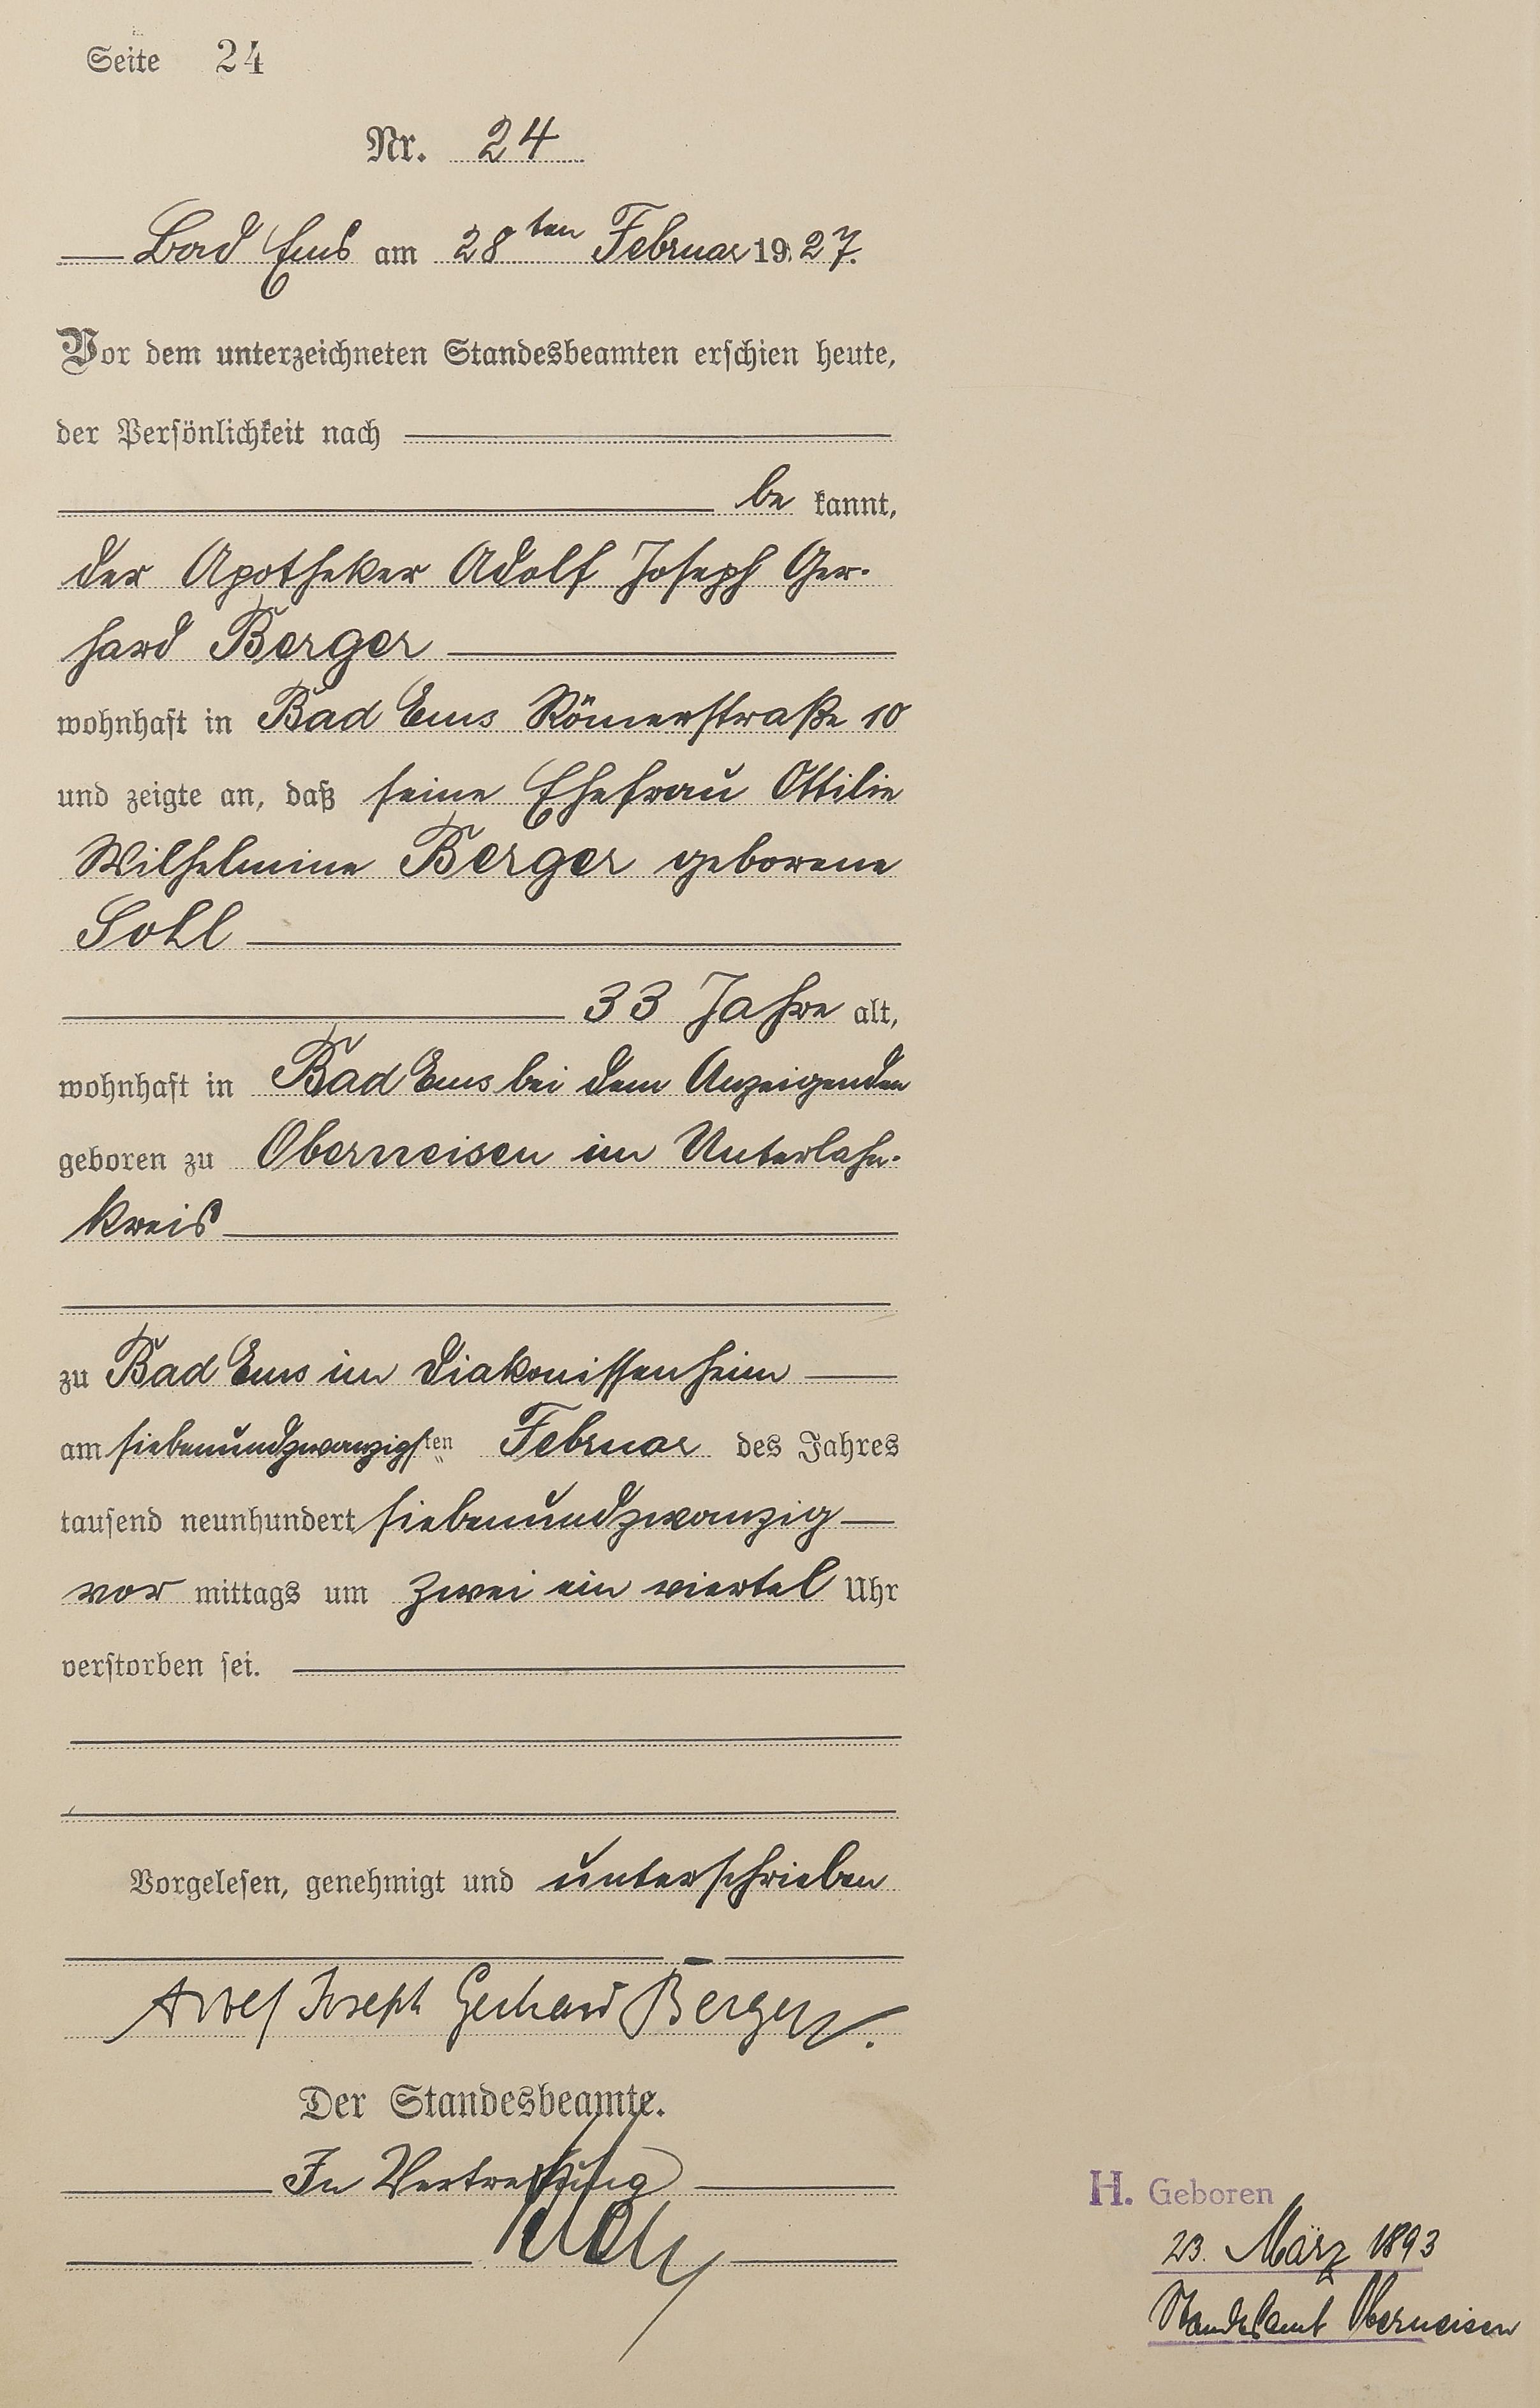 Seite 24
Nr. 24
Bad Ems am 28ten Februar 1927.
Vor dem unterzeichneten Standesbeamten erschien heute,
der Persönlichkeit nach
be kannt,
der Apotheker Adolf Joseph Ger-
hard Berger
wohnhaft in Bad Ems Römerstraße 10
und zeigte an, daß seine Ehefrau Ottilie
Wilhelmine Berger geborene
Sohl
33 Jahre alt,
wohnhaft in Bad Ems bei dem Anzeigenden
geboren zu Oberneisen im Unterlahn-
kreis
zu Bad Ems im Diakonissenheim
am siebenundzwanzigsten Februar des Jahres
tausend neunhundert siebenundzwanzig
vor mittags um zwei ein viertel Uhr
verstorben sei.
Vorgelesen, genehmigt und unterschrieben
Adolf Joseph Gerhard Berger.
Der Standesbeamte.
In Vertretung
H. Geboren
23. März 1893
Standesamt Oberneisen